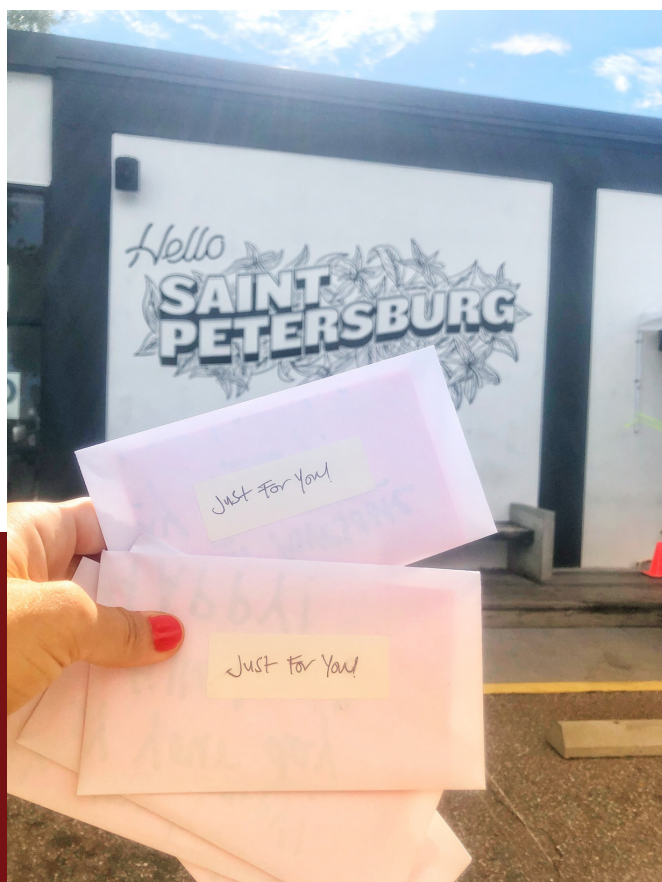 Hello
SAINT
PETERSBURG
Just For You!
Just For You!